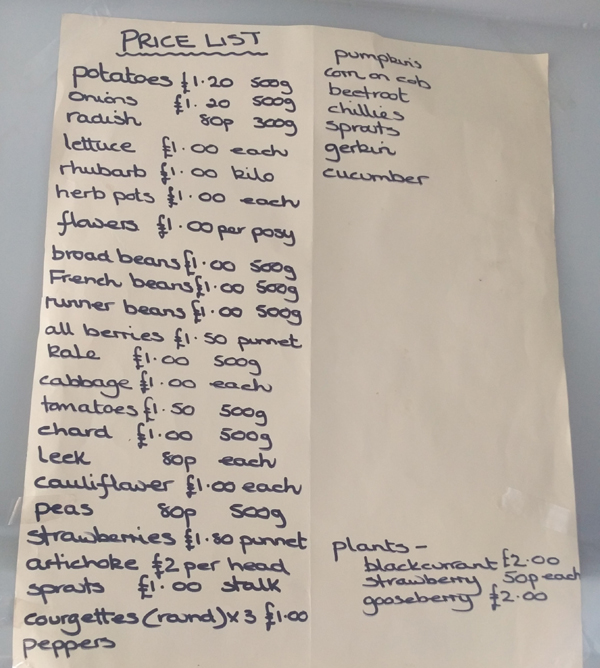 PRICE LIST
potatoes £1.20 500g
onions £1.20 500g
radish 80p 300g
lettuce £1.00 each
rhubarb £1.00 kilo
herb pots £1.00 each
flowers £1.00 per posy
broad beans £1.00 500g
French beans £1.00 500g
runner beans £1.00 500g
all berries £1.50 punnet
kale £1.00 500g
cabbage £1.00 each
tomatoes £1.50 500g
chard £1.00 500g
leek 80p each
cauliflower £1.00 each
peas 80p 500g
strawberries £1.80 punnet
artichoke £2 per head
sprouts £1.00 stalk
courgettes (round) x 3 £1.00
peppers
pumpkins
corn on cob
beetroot
chillies
sprouts
gerkin
cucumber
plants -
blackcurrant £2.00
strawberry 50p each
gooseberry £2.00